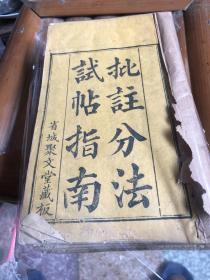 批註分法
試帖指南
省城聚文堂藏板